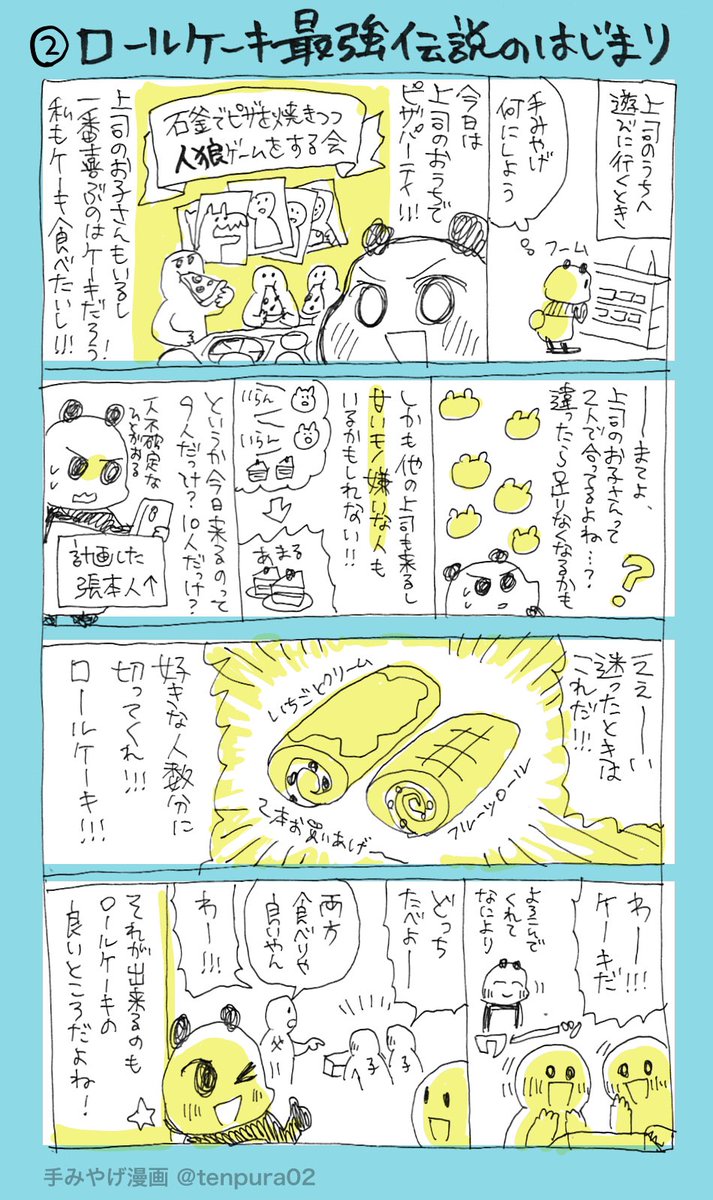 ②ロールケーキ最強伝説のはじまり
上司のうちへ
遊びに行くとき
手みやげ
何にしよう
フーム
今日は
上司のおうちで
ピザパーティ!!!
石釜でピザを焼きつつ
人狼ゲームをする会
上司のお子さんもいるし
一番喜ぶのはケーキだろう!
私もケーキ食べたいし!!!
――まてよ、
上司のお子さんって
2人で合ってるよね…?
違ったら足りなくなるかも
?
しかも他の上司も来るし
甘いモノ嫌いな人も
いるかもしれない!!
いらん
いらん
あまる
というか今日来るのって
9人だっけ?10人だっけ?
人不確定な
ひとがおる
計画した
張本人↑
ええーーい
迷ったときは
これだ!!!
いちごとクリーム
フルーツロール
2本お買いあげ
好きな人数分に
切ってくれ!!!
ロールケーキ!!!
わー!!!
ケーキだ
よろこんで
くれて
なにより
どっち
たべよー
両方
食べりゃ
良いやん
父
子
子
わー!!!
それが出来るのも
ロールケーキの
良いところだよね!
手みやげ漫画 @tenpura02